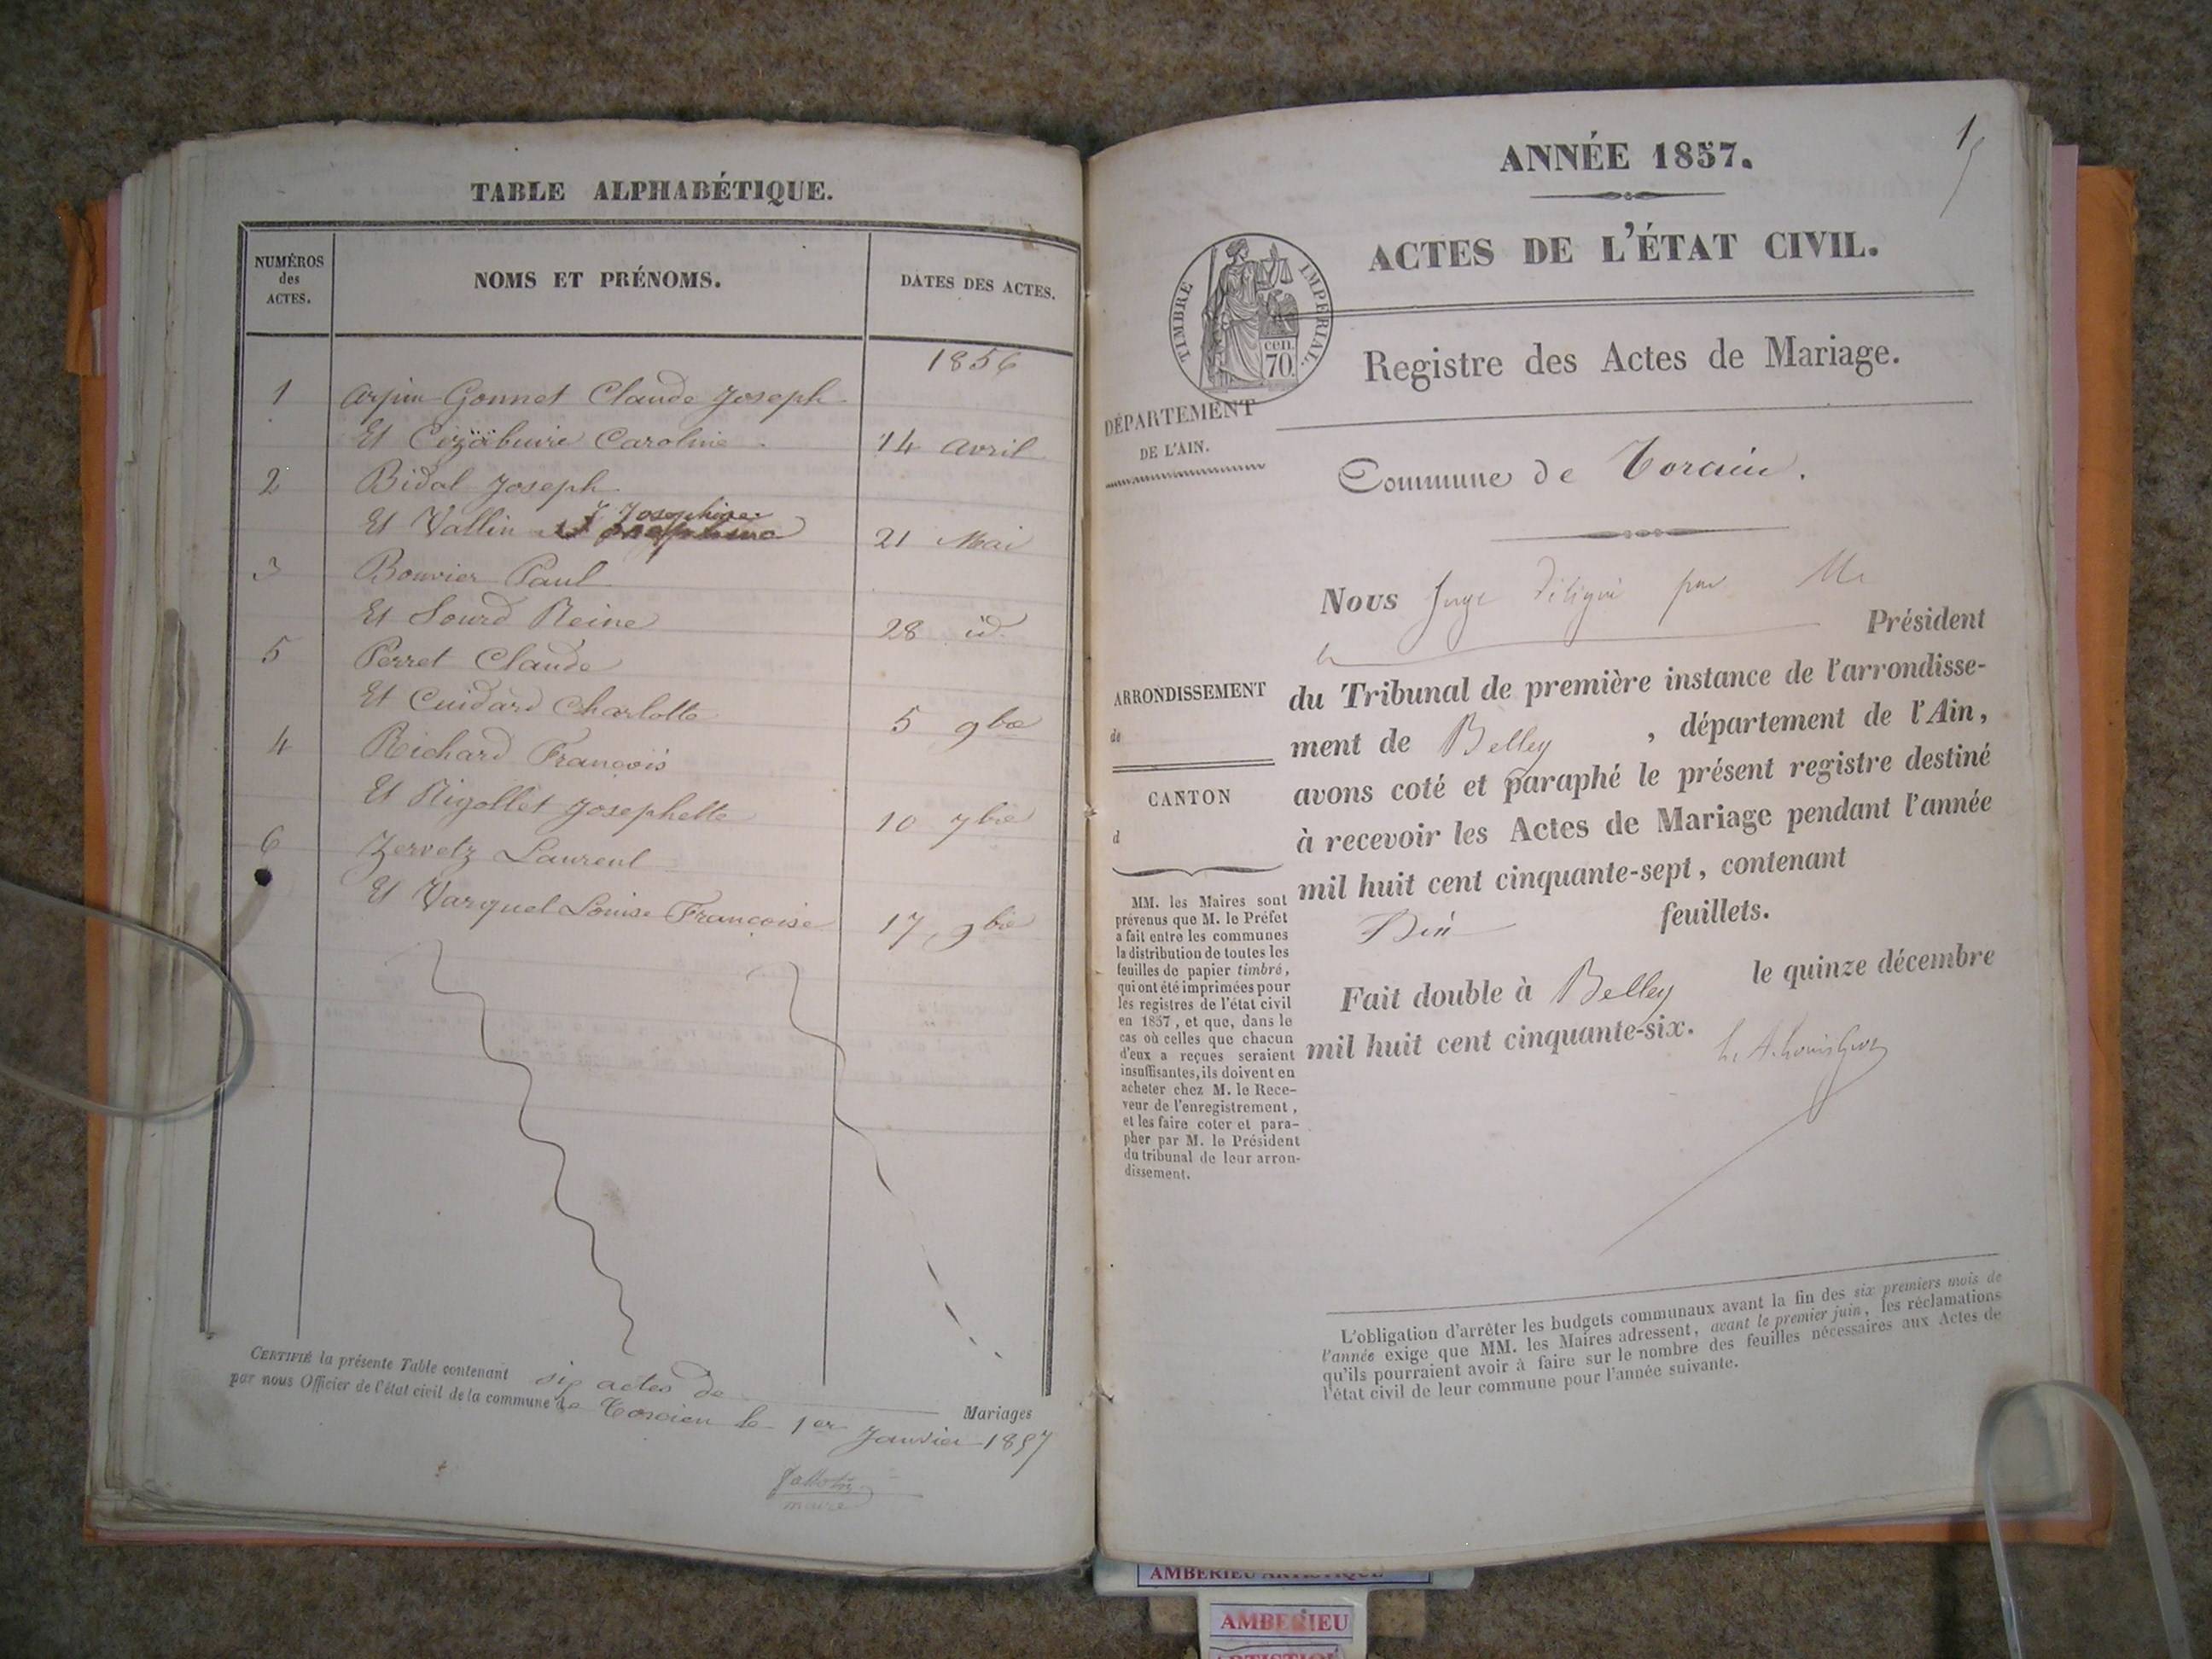 TABLE ALPHABÉTIQUE.
NUMÉROS des ACTES.
NOMS ET PRÉNOMS.
DATES DES ACTES.
1856
1 Arpin Gonnet Claude Joseph
Et Caroline 14 avril
2 Bidal Joseph
Et Vallin Josephine 21 Mai
3 Bouvier Paul
Et Sourd Reine 28 id.
5 Perret Claude
Et Cuidard Charlotte 5 9bre
4 Richard François
Et Rigollet Josephette 10 7bre
6 Zervetz Laurent
Et Varquel Louise Françoise 17 9bre
CERTIFIÉ la présente Table contenant six actes de Mariages
par nous Officier de l'état civil de la commune de Torcieu le 1er Janvier 1857
maire
1
ANNÉE 1857.
ACTES DE L'ÉTAT CIVIL.
TIMBRE IMPÉRIAL.
cen.
70.
Registre des Actes de Mariage.
DÉPARTEMENT
DE L'AIN.
Commune de Torcieu.
Nous Juge délégué par Mr
le Président
ARRONDISSEMENT
de
CANTON
d
du Tribunal de première instance de l'arrondisse-
ment de Belley, département de l'Ain,
avons coté et paraphé le présent registre destiné
à recevoir les Actes de Mariage pendant l'année
mil huit cent cinquante-sept, contenant
feuillets.
Fait double à Belley le quinze décembre
mil huit cent cinquante-six.
MM. les Maires sont
prévenus que M. le Préfet
a fait entre les communes
la distribution de toutes les
feuilles de papier timbré,
qui ont été imprimées pour
les registres de l'état civil
en 1857, et que, dans le
cas où celles que chacun
d'eux a reçues seraient
insuffisantes, ils doivent en
acheter chez M. le Rece-
veur de l'enregistrement,
et les faire coter et para-
pher par M. le Président
du tribunal de leur arron-
dissement.
L'obligation d'arrêter les budgets communaux avant la fin des six premiers mois de
l'année exige que MM. les Maires adressent, avant le premier juin, les réclamations
qu'ils pourraient avoir à faire sur le nombre des feuilles nécessaires aux Actes de
l'état civil de leur commune pour l'année suivante.
AMBERIEU ARTISTIQUE
AMBERIEU
ARTISTIQUE